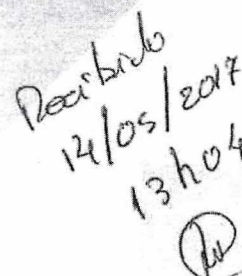 Recibido
14/05/2017
13h04